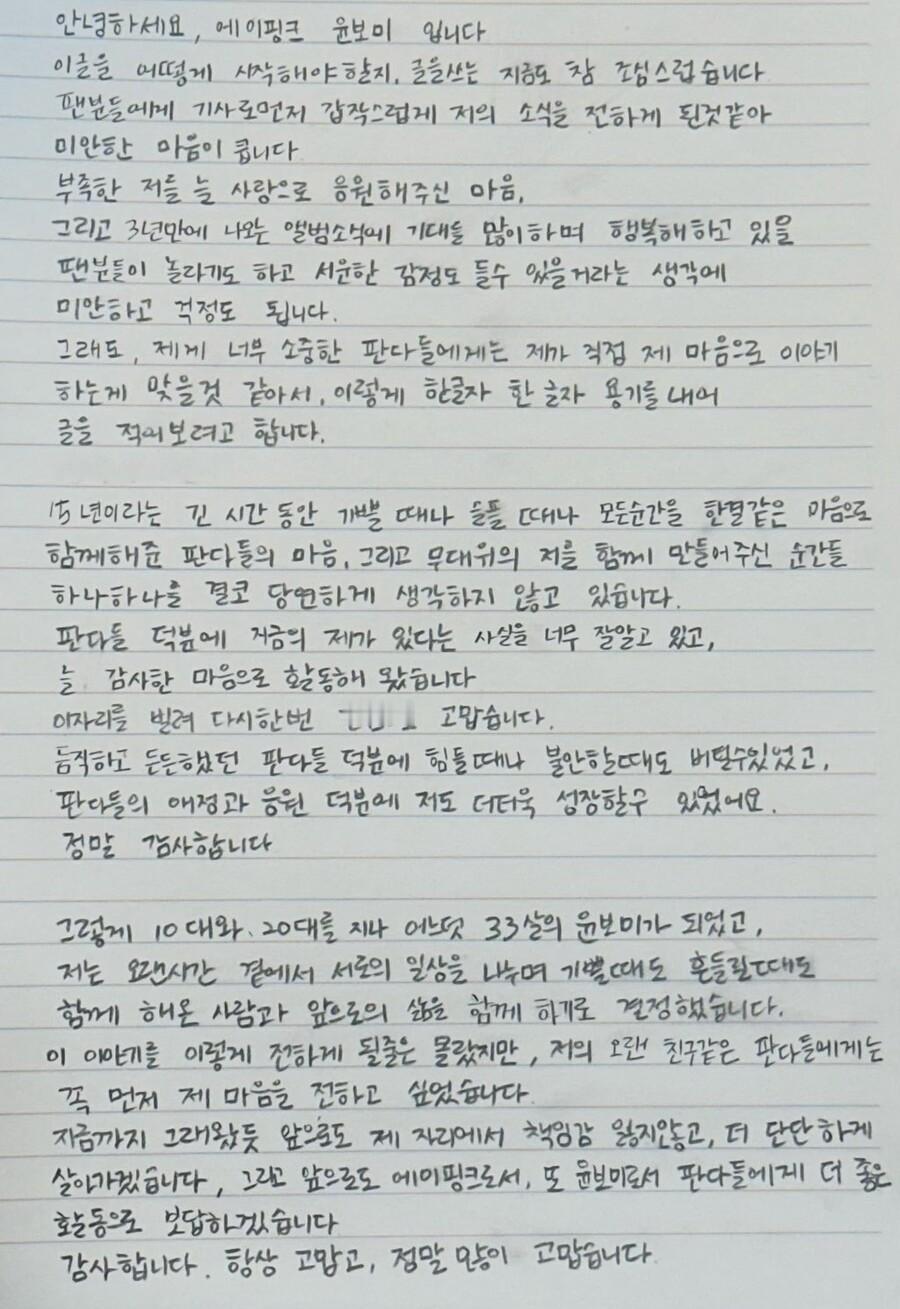 안녕하세요, 에이핑크 윤보미 입니다
이글을 어떻게 시작해야할지, 글을쓰는 지금도 참 조심스럽습니다
팬분들에게 기사로먼저 갑작스럽게 저의 소식을 전하게 된것같아
미안한 마음이 큽니다
부족한 저를 늘 사랑으로 응원해주신 마음,
그리고 3년만에 나오는 앨범소식에 기대를 많이하며 행복해하고 있을
팬분들이 놀라기도 하고 서운한 감정도 들수 있을거라는 생각에
미안하고 걱정도 됩니다.
그래도, 제게 너무 소중한 판다들에게는 제가 직접 제 마음으로 이야기
하는게 맞을것 같아서, 이렇게 한글자 한 글자 용기를 내어
글을 적어보려고 합니다.
15년이라는 긴 시간 동안 기쁠 때나 슬플 때나 모든순간을 한결같은 마음으로
함께해준 판다들의 마음, 그리고 무대위의 저를 함께 만들어주신 순간들
하나하나를 결코 당연하게 생각하지 않고 있습니다.
판다들 덕분에 지금의 제가 있다는 사실을 너무 잘알고 있고,
늘 감사한 마음으로 활동해 왔습니다
이자리를 빌려 다시한번 고맙습니다.
듬직하고 든든했던 판다들 덕분에 힘들때나 불안할때도 버틸수있었고,
판다들의 애정과 응원 덕분에 저도 더더욱 성장할수 있었어요.
정말 감사합니다
그렇게 10대와, 20대를 지나 어느덧 33살의 윤보미가 되었고,
저는 오랜시간 곁에서 서로의 일상을 나누며 기쁠때도 흔들릴때도
함께 해온 사람과 앞으로의 삶을 함께 하기로 결정했습니다.
이 이야기를 이렇게 전하게 될줄은 몰랐지만, 저의 오랜 친구같은 판다들에게는
꼭 먼저 제 마음을 전하고 싶었습니다.
지금까지 그래왔듯 앞으로도 제 자리에서 책임감 잃지않고, 더 단단하게
살아가겠습니다, 그리고 앞으로도 에이핑크로서, 또 윤보미로서 판다들에게 더 좋은
활동으로 보답하겠습니다
감사합니다. 항상 고맙고, 정말 많이 고맙습니다.